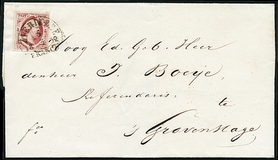 Hoog Ed. Geb. Heer
den heer J. Booije
Referendaris
te
fro
's Gravenhage